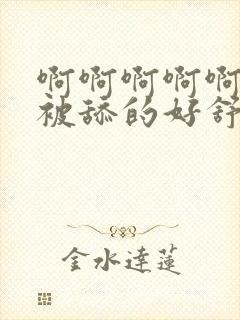 啊啊啊啊啊
被舔的好舒
金水达莲